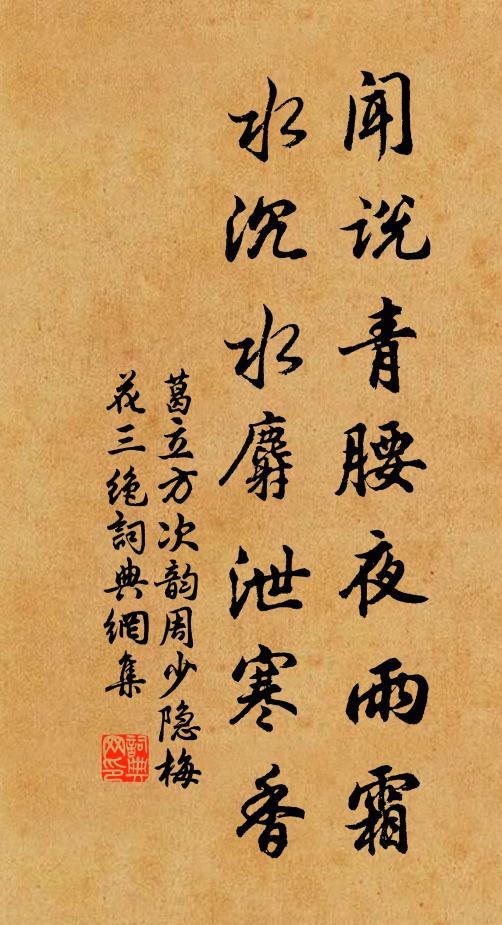 闻说青腰夜雨霜
水沉水麝泄寒香
葛立方次韵周少隐梅
花三绝词典網集
詞典網印